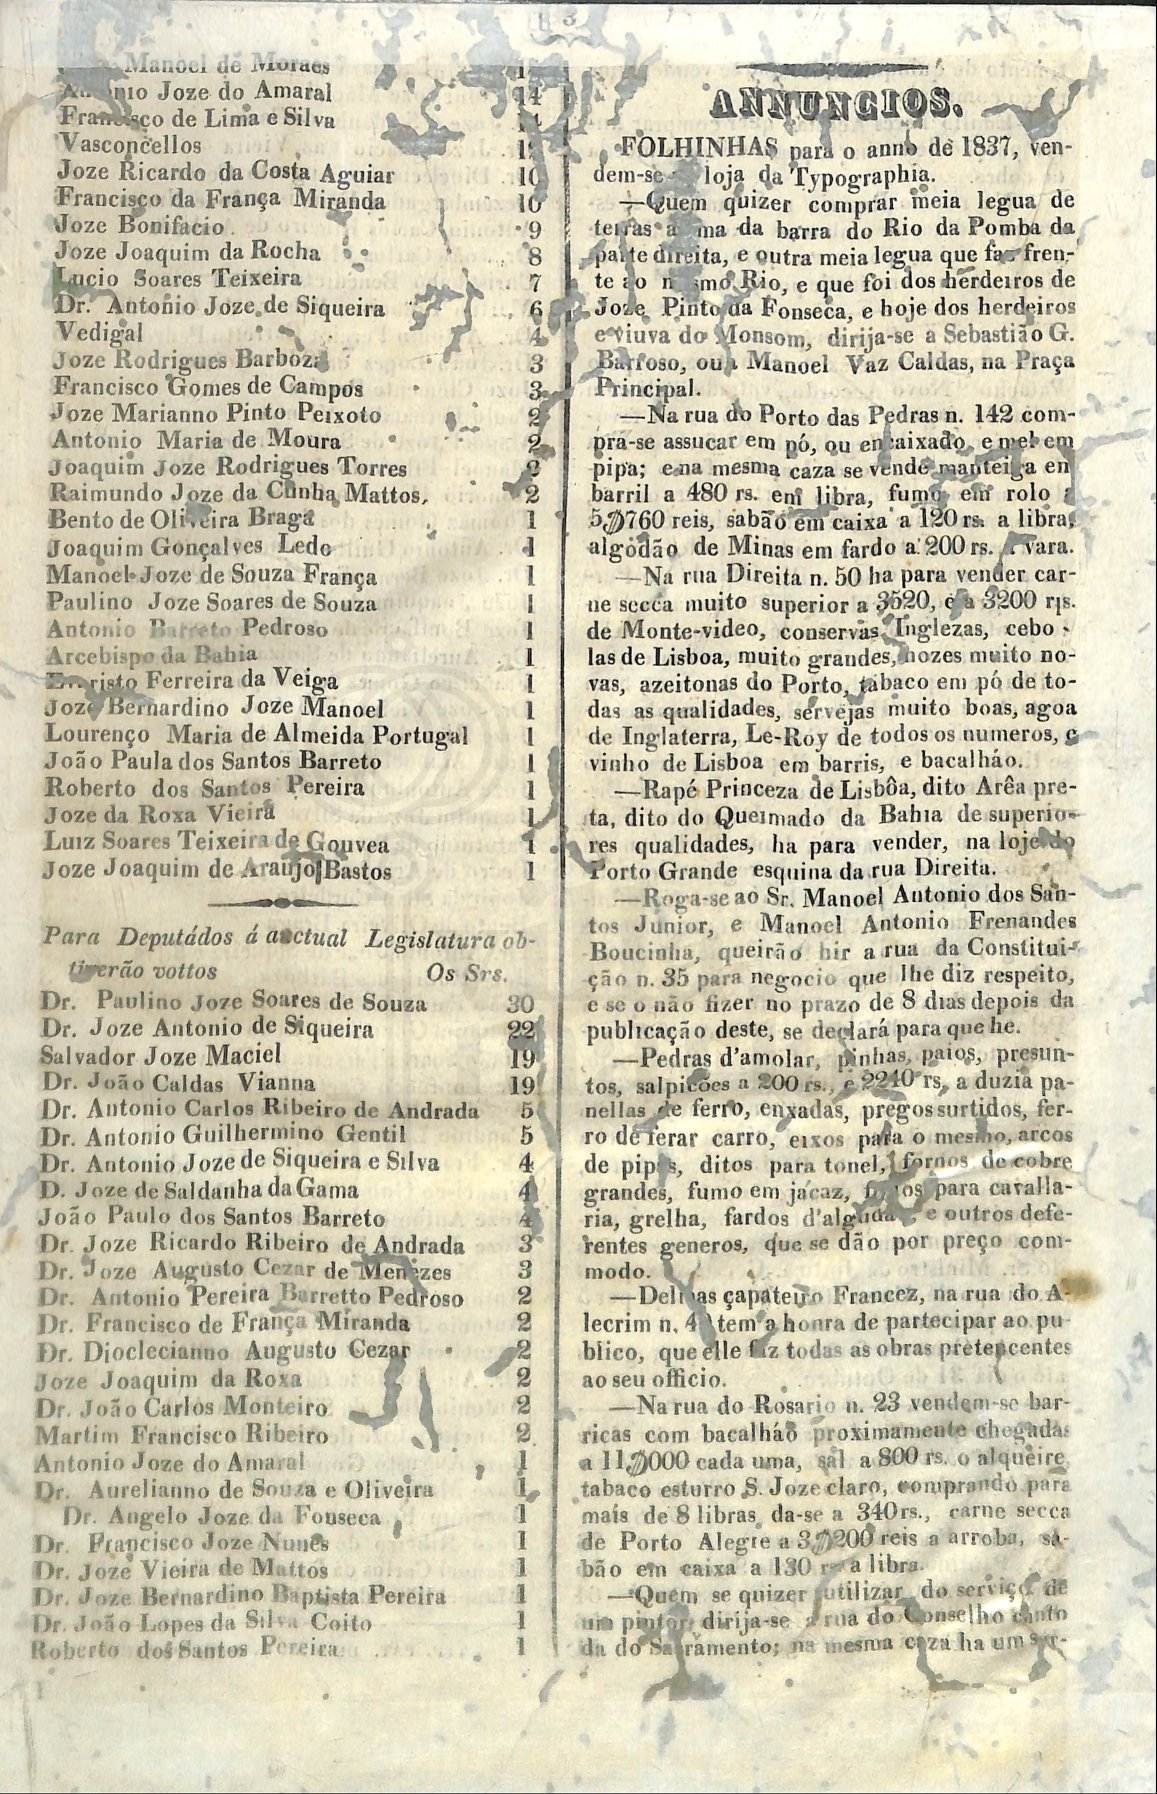 3
Manoel de Moraes
Antonio Joze do Amaral 14
Francisco de Lima e Silva
Vasconcellos
Joze Ricardo da Costa Aguiar 10
Francisco da França Miranda 10
Joze Bonifacio 9
Joze Joaquim da Rocha 8
Lucio Soares Teixeira 7
Dr. Antonio Joze de Siqueira 6
Vedigal 4
Joze Rodrigues Barboza 3
Francisco Gomes de Campos 3
Joze Marianno Pinto Peixoto 2
Antonio Maria de Moura 2
Joaquim Joze Rodrigues Torres 2
Raimundo Joze da Cunha Mattos, 2
Bento de Oliveira Braga 1
Joaquim Gonçalves Ledo 1
Manoel Joze de Souza França 1
Paulino Joze Soares de Souza 1
Antonio Barreto Pedroso 1
Arcebispo da Bahia 1
Evaristo Ferreira da Veiga 1
Joze Bernardino Joze Manoel 1
Lourenço Maria de Almeida Portugal 1
João Paula dos Santos Barreto 1
Roberto dos Santos Pereira 1
Joze da Roxa Vieira 1
Luiz Soares Teixeira de Gouvea 1
Joze Joaquim de Araujo Bastos 1
Para Deputádos á auctual Legislatura ob-
tiverão vottos Os Srs.
Dr. Paulino Joze Soares de Souza 30
Dr. Joze Antonio de Siqueira 22
Salvador Joze Maciel 19
Dr. João Caldas Vianna 19
Dr. Antonio Carlos Ribeiro de Andrada 5
Dr. Antonio Guilhermino Gentil 5
Dr. Antonio Joze de Siqueira e Silva 4
D. Joze de Saldanha da Gama 4
João Paulo dos Santos Barreto 4
Dr. Joze Ricardo Ribeiro de Andrada 3
Dr. Joze Augusto Cezar de Menezes 3
Dr. Antonio Pereira Barretto Pedroso 2
Dr. Francisco de França Miranda 2
Dr. Dioclecianno Augusto Cezar 2
Joze Joaquim da Roxa 2
Dr. João Carlos Monteiro 2
Martim Francisco Ribeiro 2
Antonio Joze do Amaral 1
Dr. Aurelianno de Souza e Oliveira 1
Dr. Angelo Joze da Fouseca 1
Dr. Francisco Joze Nunes 1
Dr. Joze Vieira de Mattos 1
Dr. Joze Bernardino Baptista Pereira 1
Dr. João Lopes da Silva Coito 1
Roberto dos Santos Pereira 1
ANNUNCIOS.
FOLHINHAS para o anno de 1837, ven-
dem-se loja da Typographia.
—Quem quizer comprar meia legua de
terras ma da barra do Rio da Pomba da
parte direita, e outra meia legua que faz fren-
te ao mesmo Rio, e que foi dos herdeiros de
Joze Pinto da Fonseca, e hoje dos herdeiros
e viuva do Monsom, dirija-se a Sebastião G.
Barroso, ou a Manoel Vaz Caldas, na Praça
Principal.
—Na rua do Porto das Pedras n. 142 com-
pra-se assucar em pó, ou encaixado, e mel em
pipa; e na mesma caza se vende manteiga en
barril a 480 rs. em libra, fumo em rolo a
5$760 reis, sabão em caixa a 120 rs. a libra,
algodão de Minas em fardo a 200 rs. a vara.
—Na rua Direita n. 50 ha para vender car-
ne secca muito superior a 3520, e a 3200 rs.
de Monte-video, conservas Inglezas, cebo-
las de Lisboa, muito grandes, nozes muito no-
vas, azeitonas do Porto, tabaco em pó de to-
das as qualidades, servejas muito boas, agoa
de Inglaterra, Le-Roy de todos os numeros, e
vinho de Lisboa em barris, e bacalháo.
—Rapé Princeza de Lisbôa, dito Arêa pre-
ta, dito do Queimado da Bahia de superio-
res qualidades, ha para vender, na loje do
Porto Grande esquina da rua Direita.
—Roga-se ao Sr. Manoel Antonio dos San-
tos Junior, e Manoel Antonio Frenandes
Boucinha, queirão hir a rua da Constitui-
ção n. 35 para negocio que lhe diz respeito,
e se o não fizer no prazo de 8 dias depois da
publicação deste, se declará para que he.
—Pedras d'amolar, pinhas, paios, presun-
tos, salpicões a 200 rs., e 2240 rs, a duzia pa-
nellas de ferro, enxadas, pregos surtidos, fer-
ro de ferar carro, eixos para o mesmo, arcos
de pipas, ditos para tonel, fornos de cobre
grandes, fumo em jacaz, para cavalla-
ria, grelha, fardos d'algudão, e outros defe-
rentes generos, que se dão por preço com-
modo.
—Delmas çapateiro Francez, na rua do A-
lecrim n. tem a honra de partecipar ao pu-
blico, que elle faz todas as obras pretencentes
ao seu officio.
—Na rua do Rosario n. 23 vendem-se bar-
ricas com bacalháo proximamente chegadas
a 11$000 cada uma, sal a 800 rs. o alqueire,
tabaco esturro S. Joze claro, comprando para
mais de 8 libras da-se a 340 rs., carne secca
de Porto Alegre a 3$200 reis a arroba, sa-
bão em caixa a 130 rs a libra.
—Quem se quizer utilizar do serviço de
um pintor dirija-se a rua do Conselho canto
da do Sacramento; na mesma caza ha um ser-